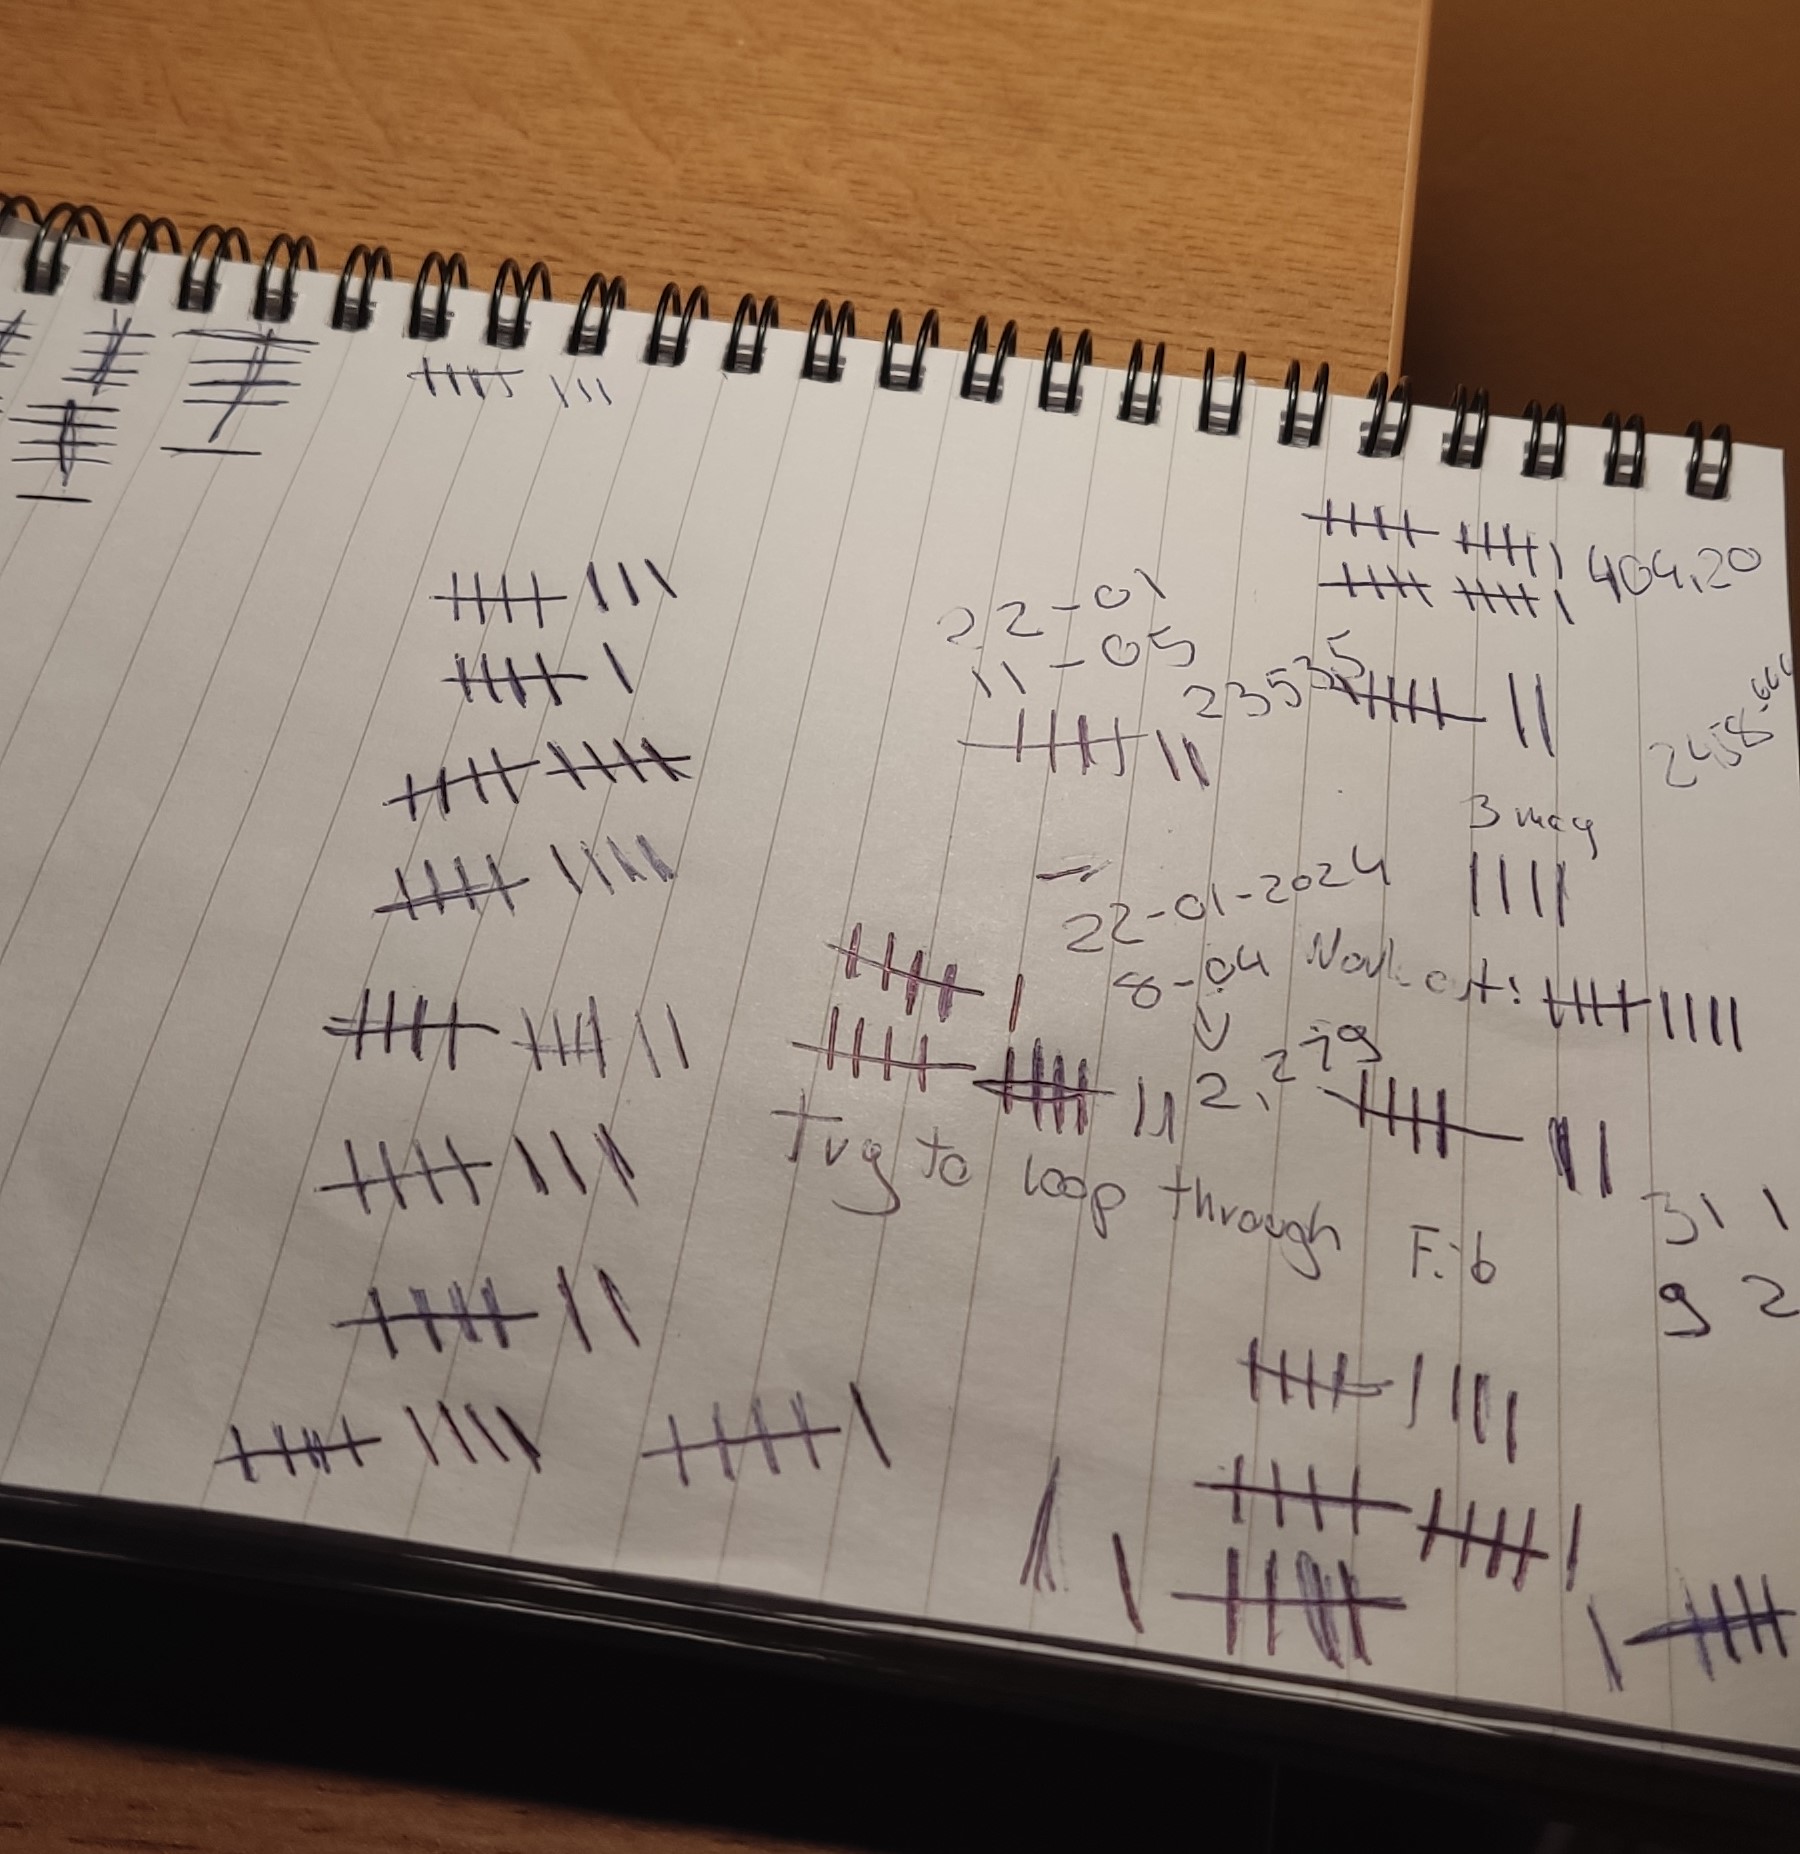 404,20
22-01
11-05
23535
3 may
22-01-2024
8-04
2,279
Try to loop through Fib
31 1
9 2